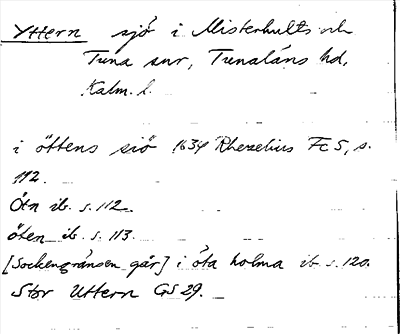 Yttern sjö i Misterhults och
Tuna snr, Tunaläns hd,
Kalm. l.
i öttens siö 1634 Rhezelius Fc 5, s.
112.
Ötn ib. s. 112.
öten ib. s. 113.
[Sockengränsen går] i öta holma ib. s. 120.
Stor Uttern GS 29.